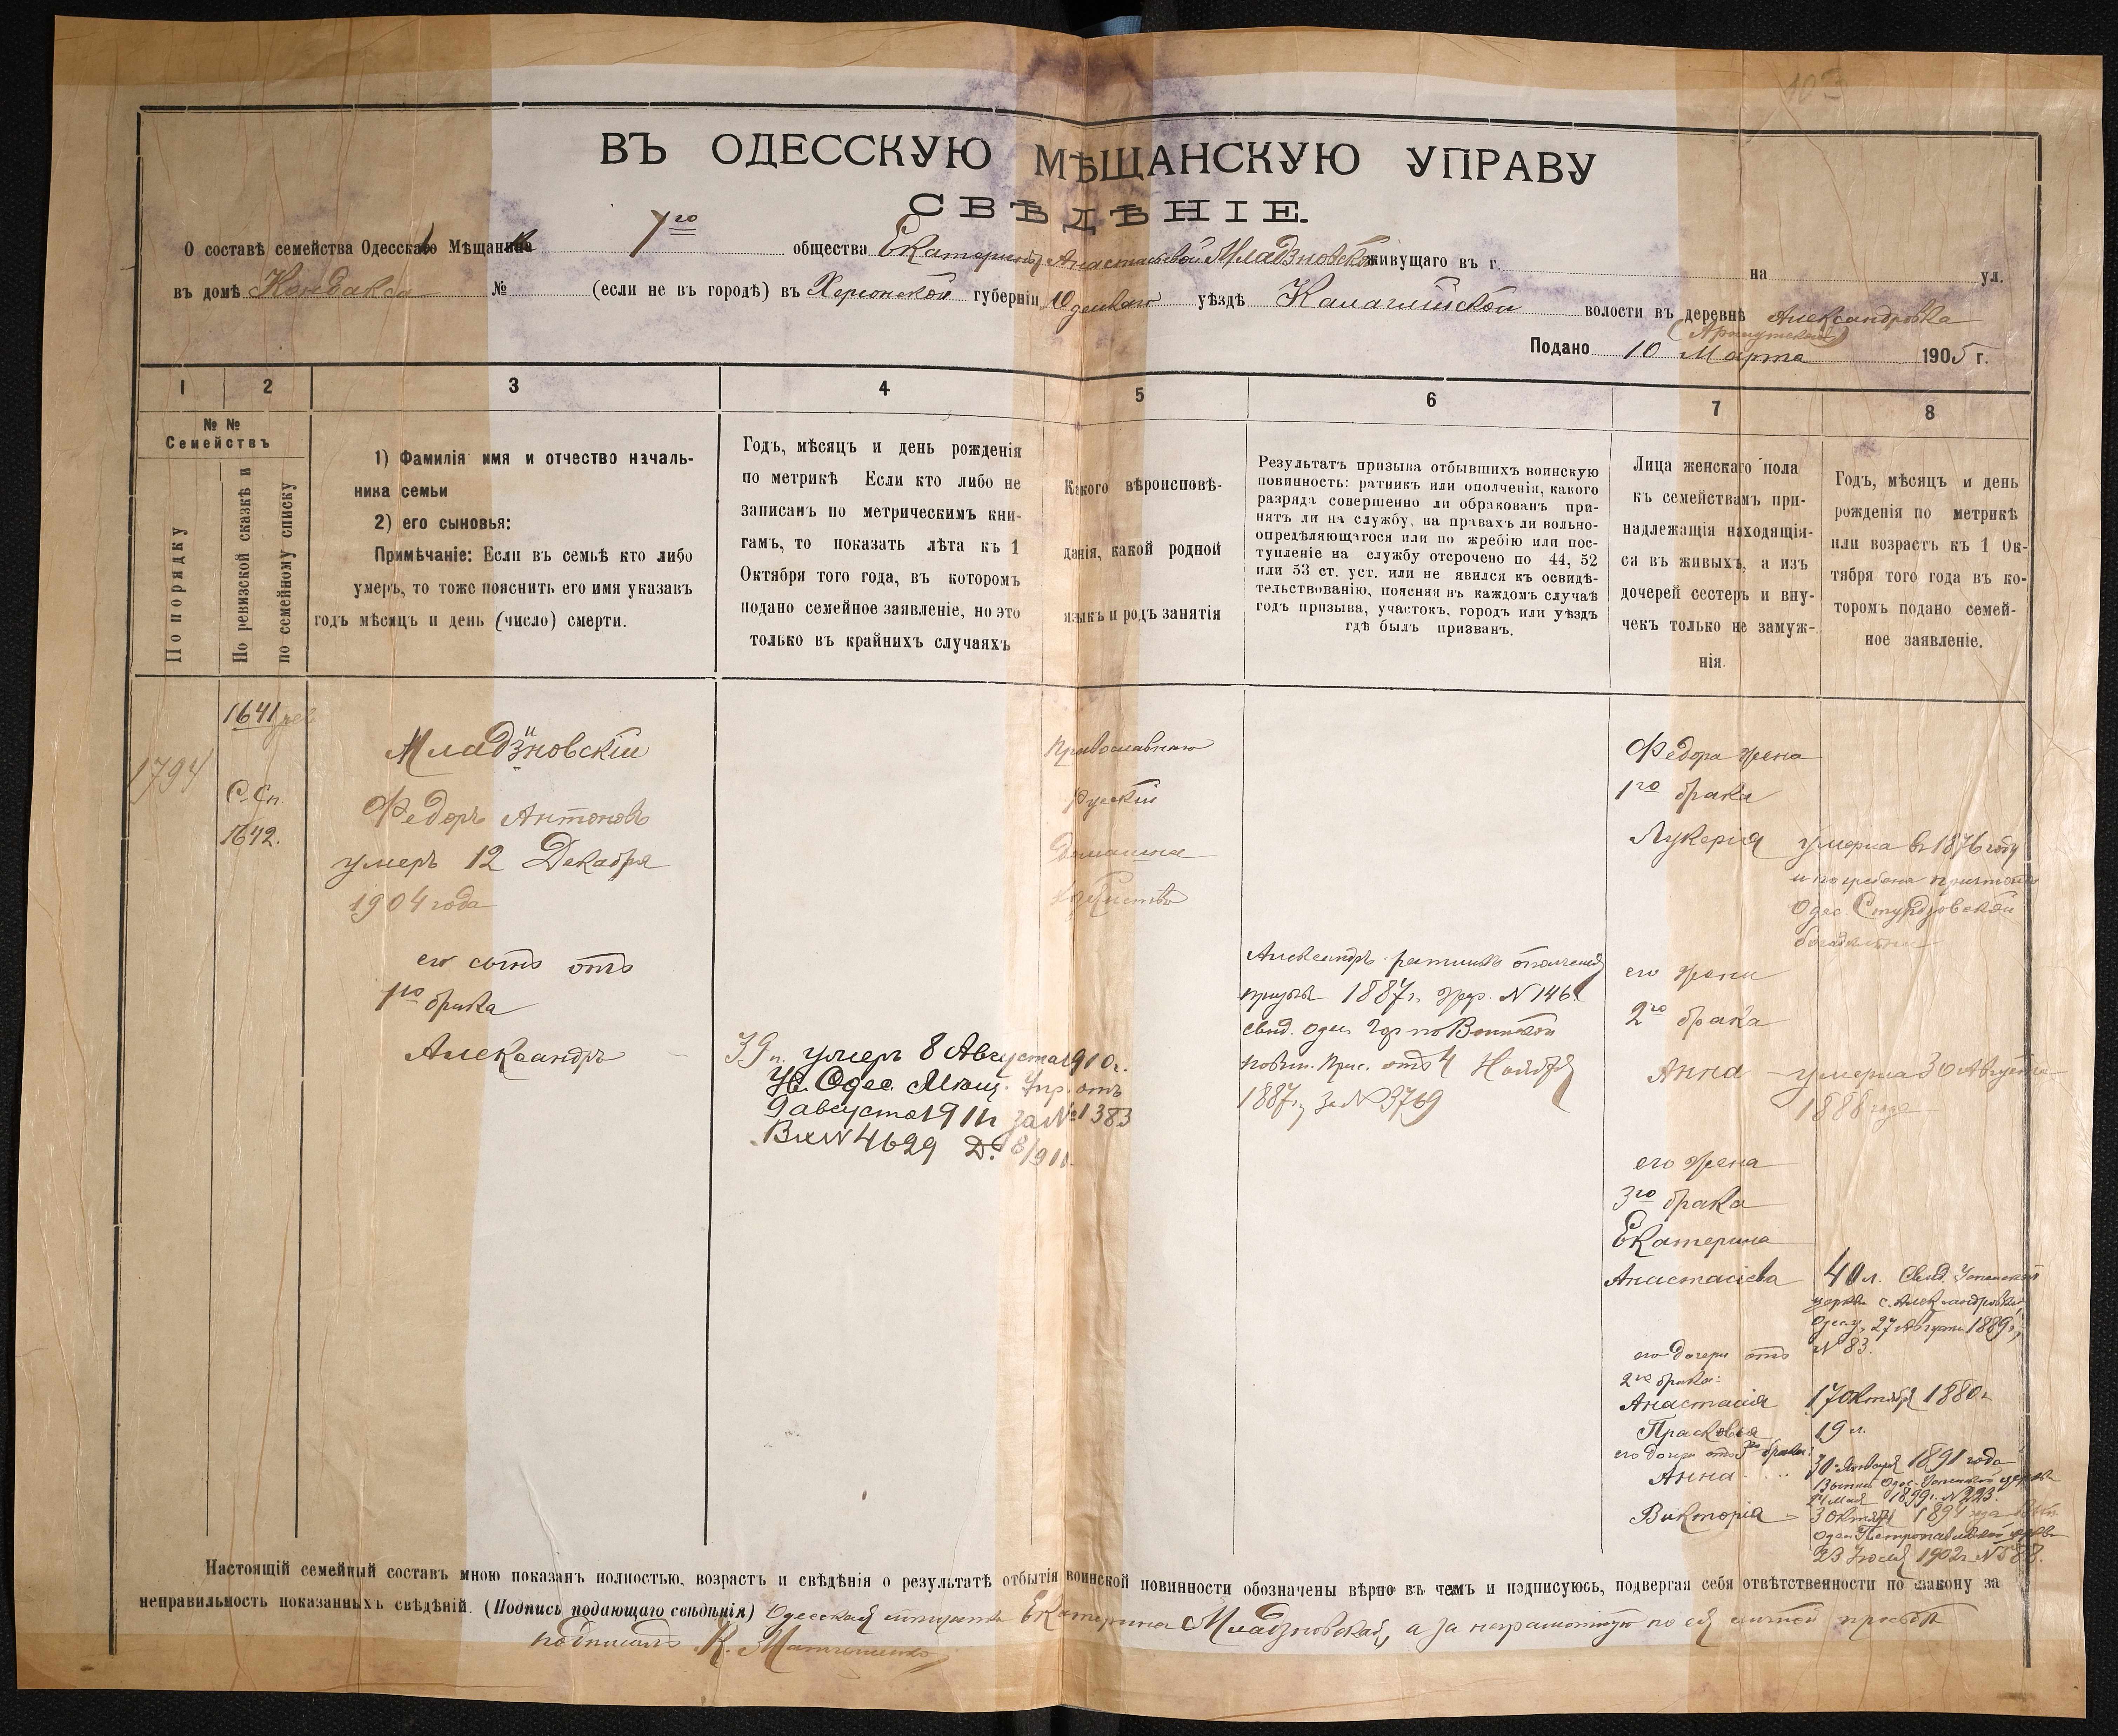 ВЪ ОДЕССКУЮ МѢЩАНСКУЮ УПРАВУ
СВѢДѢНІЕ.
О составѣ семейства Одесскаго Мѣщан 7го общества Екатерины Анастасьевой Младзновской живущаго въ г. на ул.
въ домѣ № (если не въ городѣ) въ Херсонской губерніи Одесскаго уѣздѣ волости въ деревнѣ Александровка
Подано 10 Марта 1905 г.
1 2 3 4 5 6 7 8
№ № Семействъ
По порядку
По ревизской сказкѣ и
по семейному списку
1) Фамилія имя и отчество началь-
ника семьи
2) его сыновья:
Примѣчаніе: Если въ семьѣ кто либо
умеръ, то тоже пояснить его имя указавъ
годъ мѣсяцъ и день (число) смерти.
Годъ, мѣсяцъ и день рожденія
по метрикѣ Если кто либо не
записанъ по метрическимъ кни-
гамъ, то показать лѣта къ 1
Октября того года, въ которомъ
подано семейное заявленіе, но это
только въ крайнихъ случаяхъ
Какого вѣроисповѣ-
данія, какой родной
языкъ и родъ занятія
Результатъ призыва отбывшихъ воинскую
повинность: ратникъ или ополченія, какого
разряда совершенно ли обракованъ при-
нятъ ли на службу, на правахъ ли вольно-
опредѣляющагося или по жребію или пос-
тупленіе на службу отсрочено по 44, 52
или 53 ст. уст. или не явился къ освидѣ-
тельствованію, поясняя въ каждомъ случаѣ
годъ призыва, участокъ, городъ или уѣздъ
гдѣ былъ призванъ.
Лица женскаго пола
къ семействамъ при-
надлежащія находящія-
ся въ живыхъ, а изъ
дочерей сестеръ и вну-
чекъ только не замуж-
нія.
Годъ, мѣсяцъ и день
рожденія по метрикѣ
или возрастъ къ 1 Ок-
тября того года въ ко-
торомъ подано семей-
ное заявленіе.
1794
1641 рев
С. Сп.
1642.
Младзиновскій
Федоръ Антоновъ
умеръ 12 Декабря
1904 года
его сынъ отъ
1го брака
Александръ
39 л. умеръ 8 Августа 1910 г.
Ув. Одес. Мѣщ. Упр. отъ
9 августа 1911 г. за № 1383
Вх № 4629
Православнаго
Русскій
Александръ ратникъ ополченія
призыва 1887 г. жер. № 146
свид. Одес. Гор по Воинской
повин. Прис. отъ 4 Ноября
1887 г. за № 3769
Федора жена
1го брака
Лукерія умерла въ 1876 году
и погребена при
Одес. Стурдзовской
богадельни
его жена
2го брака
Анна – умерла 30 Августа
1888 года
его жена
3го брака
Екатерина
Анастасіева 40 л. Свид. Успенской
церкви с. Александровки
Одес у. 27 Августа 1889 г.
№ 83.
его дочери отъ
2го брака:
Анастасія 17 Октября 1880 г.
Прасковья 19 л.
его дочери отъ 3го брака:
Анна 30 Января 1891 года
Выпись Одес. Успенской церкви
24 мая 1899 г. № 223.
Викторія – 3 Октября 1894 года
Одес Петропавловской церкви
23 Іюля 1902 г. № 588.
Настоящій семейный составъ мною показанъ полностью, возрастъ и свѣдѣнія о результатѣ отбытія воинской повинности обозначены вѣрно въ чемъ и подписуюсь, подвергая себя отвѣтственности по закону за
неправильность показанныхъ свѣдѣній. (Подпись подающаго свѣдѣнія) Одесская мѣщанка Екатерина Младзновская, а за неграмотную по ея личной просьбѣ
подписалъ К.